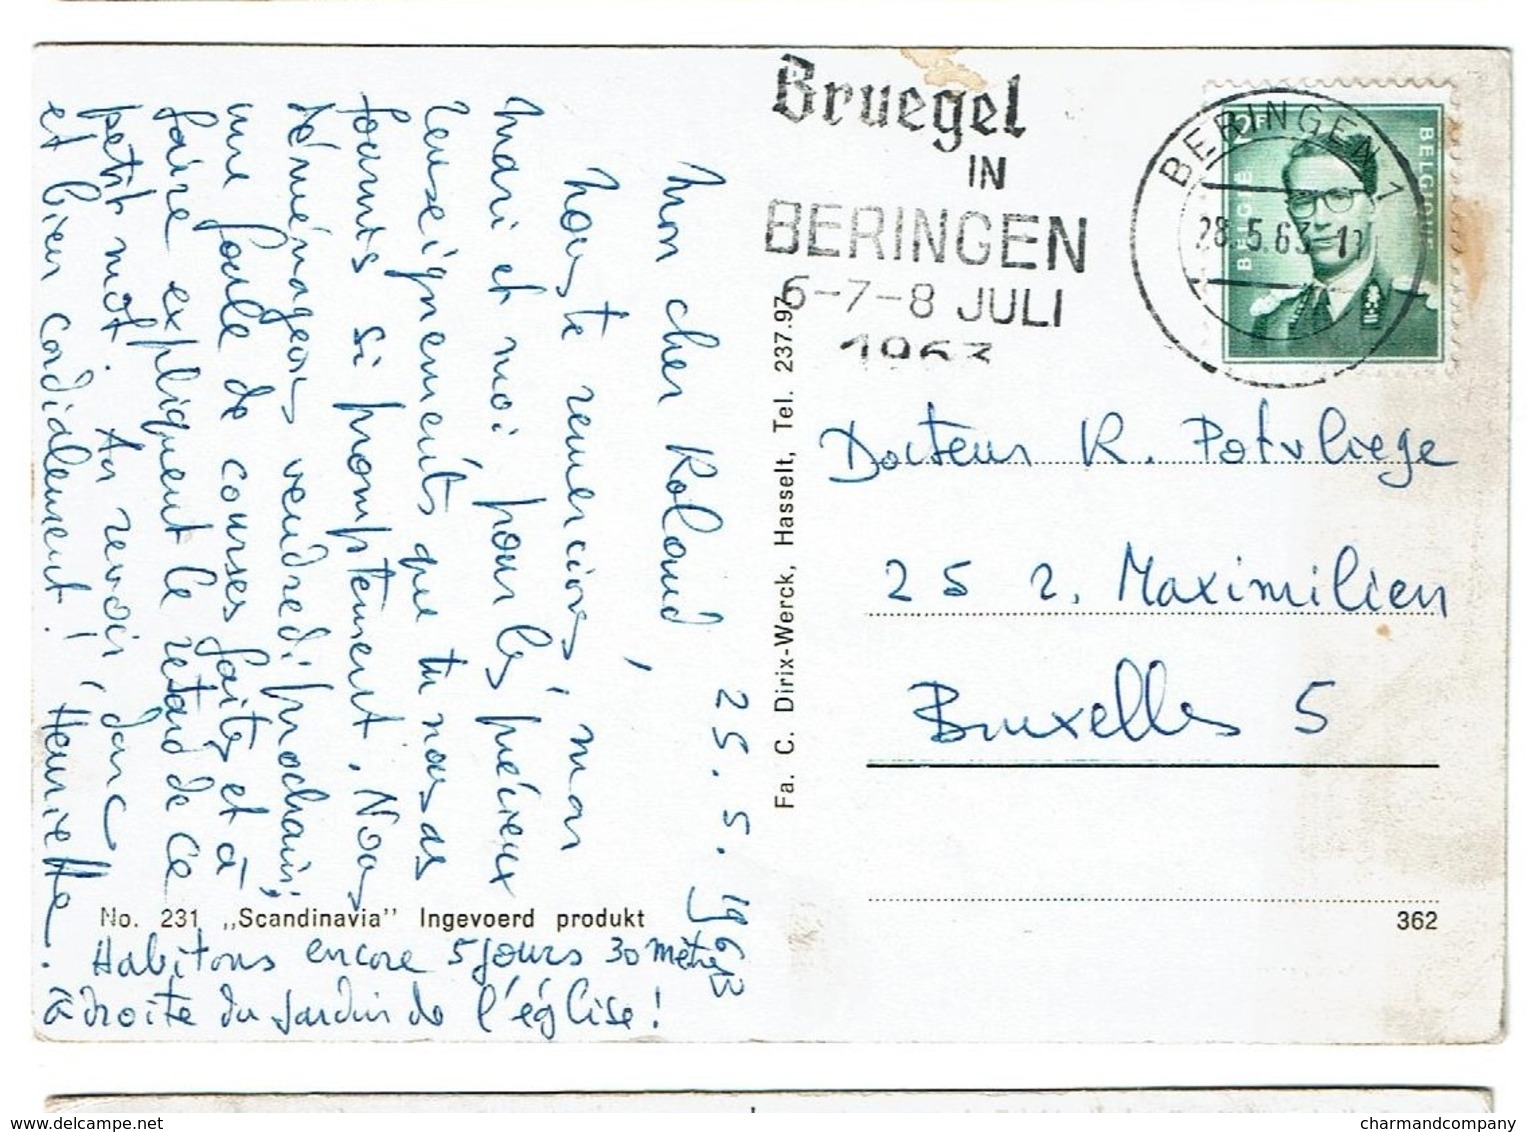 Bruegel
IN
BERINGEN
6-7-8 JULI
1963
BERINGEN 1
28.5.63
2F
BELGIË
BELGIQUE
Docteur R. Potvliege
25 r. Maximilien
Bruxelles 5
Fa. C. Dirix-Werck, Hasselt, Tel. 237.97
25.5.1963
Mon cher Roland,
Nous te remercions, mon
mari et moi pour les précieux
renseignements que tu nous as
fournis si promptement. Nous
déménageons vendredi prochain;
une foule de courses faites et à
faire expliquent le retard de ce
petit mot. Au revoir donc
et bien cordialement! Henriette.
No. 231 „Scandinavia" Ingevoerd produkt
362
Habitons encore 5 jours 30 mètres
à droite du jardin de l'église!
delcampe.net
charmandcompany